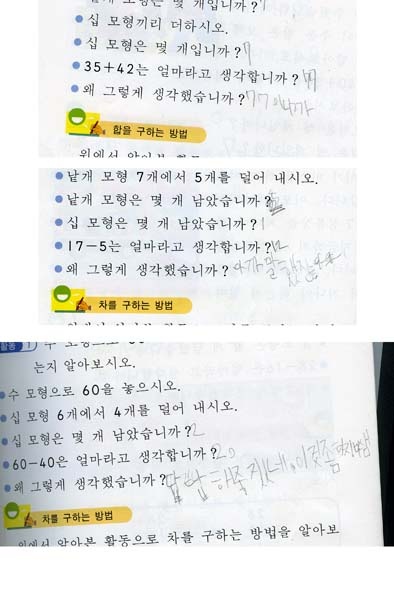 모형은 몇 개입니까?
십 모형끼리 더하시오.
십 모형은 몇 개입니까? 7
35+42는 얼마라고 생각합니까? 77
왜 그렇게 생각했습니까? 77이니까
합을 구하는 방법
위에서 알아본 활동
낱개 모형 7개에서 5개를 덜어 내시오.
낱개 모형은 몇 개 남았습니까? 2
십 모형은 몇 개 남았습니까? 1
17-5는 얼마라고 생각합니까? 12
왜 그렇게 생각했습니까? 아까 말했잖아
차를 구하는 방법
는지 알아보시오.
수 모형으로 60을 놓으시오.
십 모형 6개에서 4개를 덜어 내시오.
십 모형은 몇 개 남았습니까? 2
60-40은 얼마라고 생각합니까? 20
왜 그렇게 생각했습니까? 답답해 죽겠네 이것좀
차를 구하는 방법
위에서 알아본 활동으로 차를 구하는 방법을 알아보